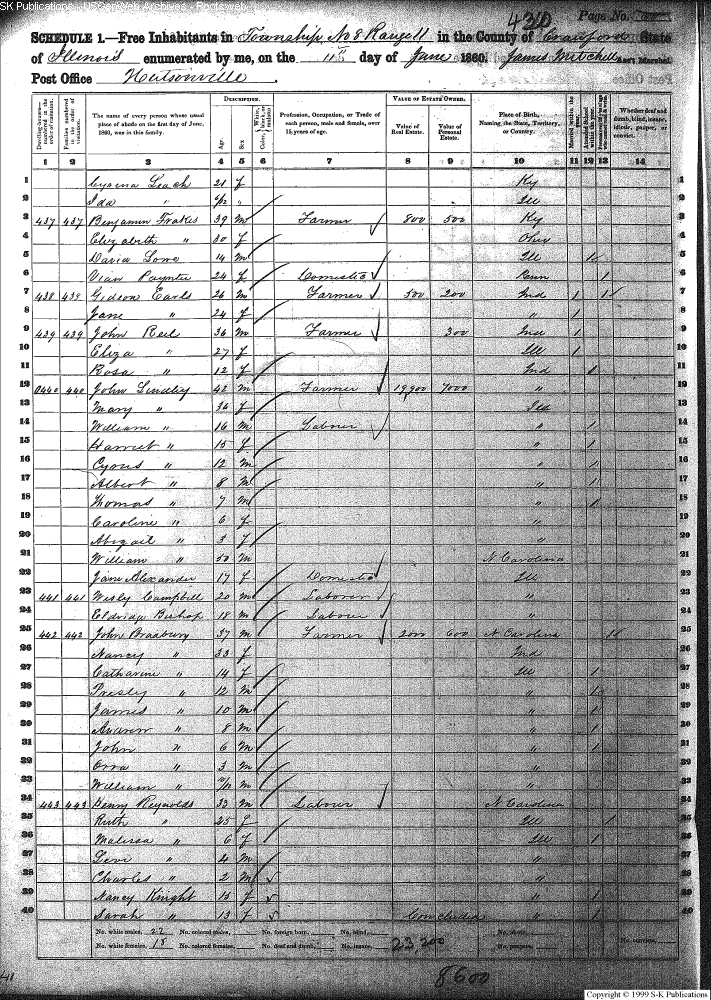 SK Publications - USGenWeb Archives - Rootsweb
430
Page No.
SCHEDULE 1.—Free Inhabitants in Township No 8 Range 11 in the County of Crawford State
of Illinois enumerated by me, on the 11th day of June 1860. James Mitchell Ass't Marshal.
Post Office Hutsonville.
Dwelling-houses—numbered in the order of visitation.
Families numbered in the order of visitation.
The name of every person whose usual place of abode on the first day of June, 1860, was in this family.
DESCRIPTION.
Age
Sex
Color, White, black, or mulatto
Profession, Occupation, or Trade of each person, male and female, over 15 years of age.
VALUE OF ESTATE OWNED.
Value of Real Estate.
Value of Personal Estate.
Place of Birth, Naming the State, Territory, or Country.
Married within the year.
Attended School within the year.
Whether deaf and dumb, blind, insane, idiotic, pauper, or convict.
1 2 3 4 5 6 7 8 9 10 11 12 13 14
1 Leach 21 f Ky 1
2 Ida " " Ill 2
3 437 437 Benjamin Frakes 39 m Farmer 800 500 Ky 3
4 Elizabeth " 30 f Ohio 4
5 David Lowe 14 m Ill 1 5
6 Vian Paynter 24 f Domestic Penn 1 6
7 438 439 Gideon Earls 26 m Farmer 500 200 Ind 1 1 7
8 Jane " 24 f " 1 8
9 439 439 John Reel 36 m Farmer 300 Ind 1 9
10 Eliza " 27 f Ill 1 10
11 Rosa " 12 f Ind 1 11
12 0440 440 John Lindley 42 m Farmer 19,900 7000 " 12
13 Mary " 36 f 13
14 William " 16 m Labour " 1 14
15 Harriet " 15 f " 1 15
16 Cyrus " 12 m " 1 16
17 Albert " 8 m " 1 17
18 Thomas " 7 m " 1 18
19 Caroline " 6 f " 19
20 Abigail " 3 f " 20
21 William " 50 m N Carolina 21
22 Jane Alexander 17 f Domestic Ill 22
23 441 441 Wesly Campbell 20 m Laborer " 23
24 Eldridge Bishop 18 m Labour " 24
25 442 442 John Bradbury 37 m Farmer 2000 600 N Carolina 1 25
26 Nancy " 33 f Ind 26
27 Catharine " 14 f Ill 1 27
28 Presley " 12 m " 1 28
29 James " 10 m " 1 29
30 Andrew " 8 m " 1 30
31 John " 6 m " 1 31
32 Orra " 3 m " 32
33 William " m " 33
34 443 443 Henry Reynolds 33 m Labour N Carolina 34
35 Ruth " 25 f Ill 1 35
36 Malissa " 6 f Ill 1 36
37 Levi " 4 m " 37
38 Charles " 2 m " 38
39 Nancy Knight 15 f " 1 39
40 Sarah " 13 f " 1 40
No. white males, 22 No. colored males, No. foreign born, No. blind,
No. white females, 18 No. colored females, No. deaf and dumb, No. insane, 23,200 No. paupers, No. convicts,
8600
Copyright © 1999 S-K Publications